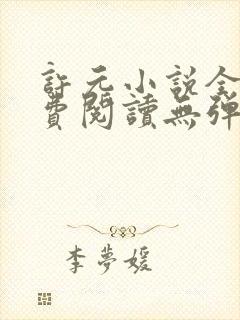 許元小說全
費閱讀無彈
李夢媛